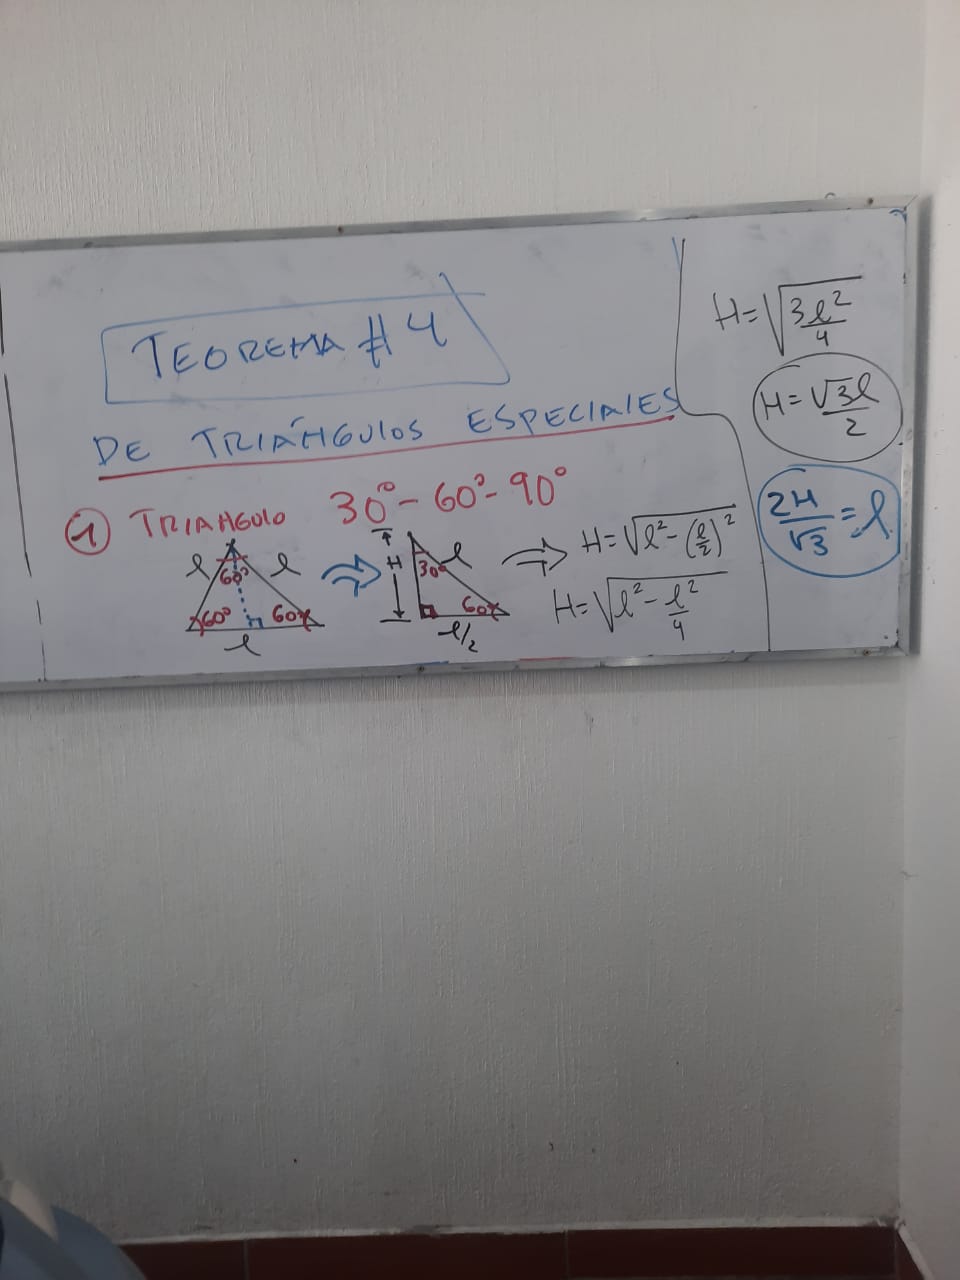 TEOREMA # 4
DE TRIÁNGULOS ESPECIALES
1 TRIANGULO 30° - 60° - 90°
l 60° l
60° 60
l
H 30° l
60
l/2
H = √(l² - (l/2)²)
H = √(l² - l²/4)
H = √(3l²/4)
H = √3l/2
2H/√3 = l